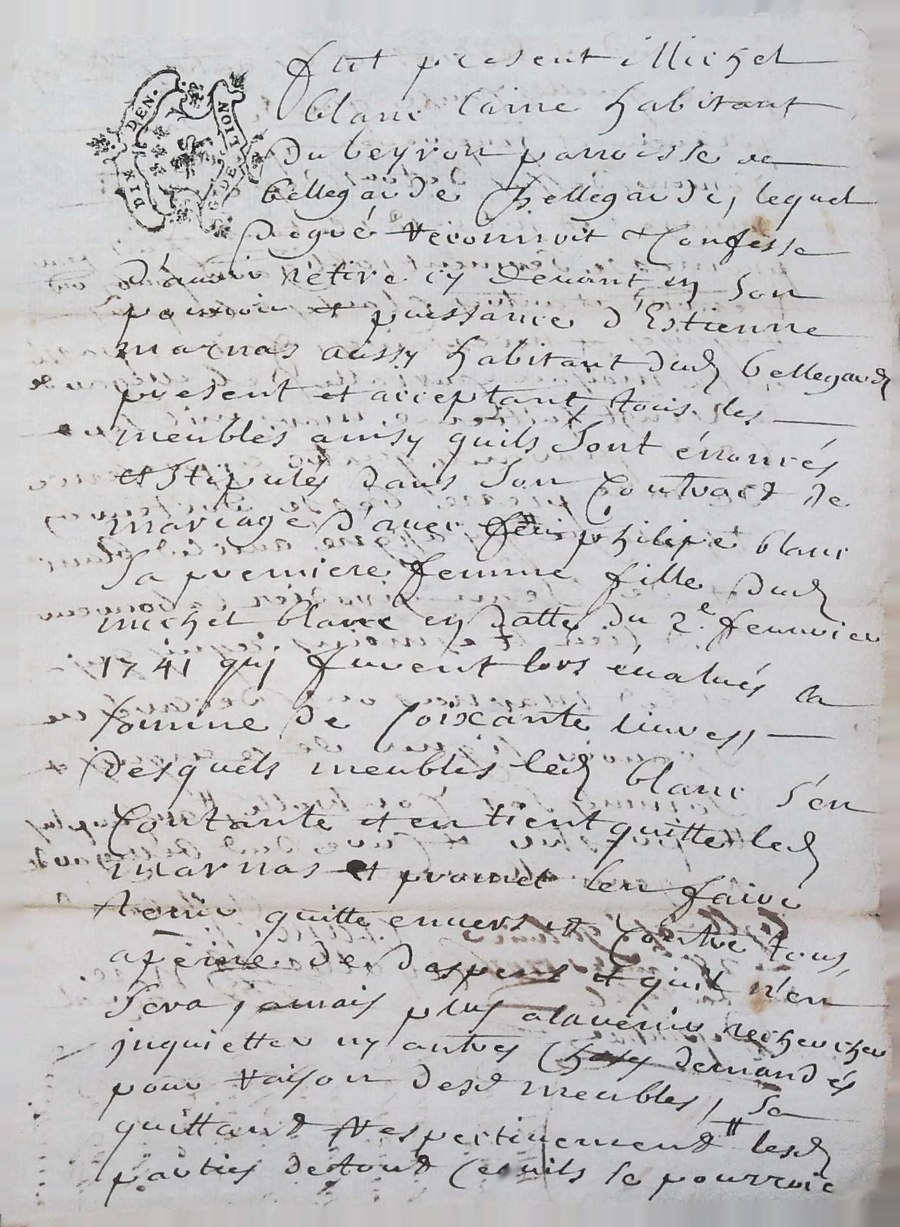 DIX DEN.
G. DE
NOIT. LION
fut present Michel
blanc laine habitant
du beyron parroisse de
bellegarde bellegarde, lequel
de gré reconnoit et Confesse
d'avoir retire cy devant en son
pouvoir et puissance d'Estienne
marnas aussy habitant dud bellegarde
present et acceptant tous les
meubles ainsy quils sont énoncés
et stipulés dans son Contract de
mariage d'avec philipe blanc
Sa premiere femme fille dud
michel blanc en datte du 2e. fevrier
1741 qui furent lors évalués a
somme de soixante livres,
desquels meubles led blanc s'en
Contante et en tient quitte led
marnas et promet len faire
tenir quitte envers et Contre tous,
apeine de despens et quil n'en
sera jamais plus alavenir rechercher
inquietter ny autres demandés
pour raison desd meubles, se
quittand respectivement lesd
parties detoud Cequils se pourroie